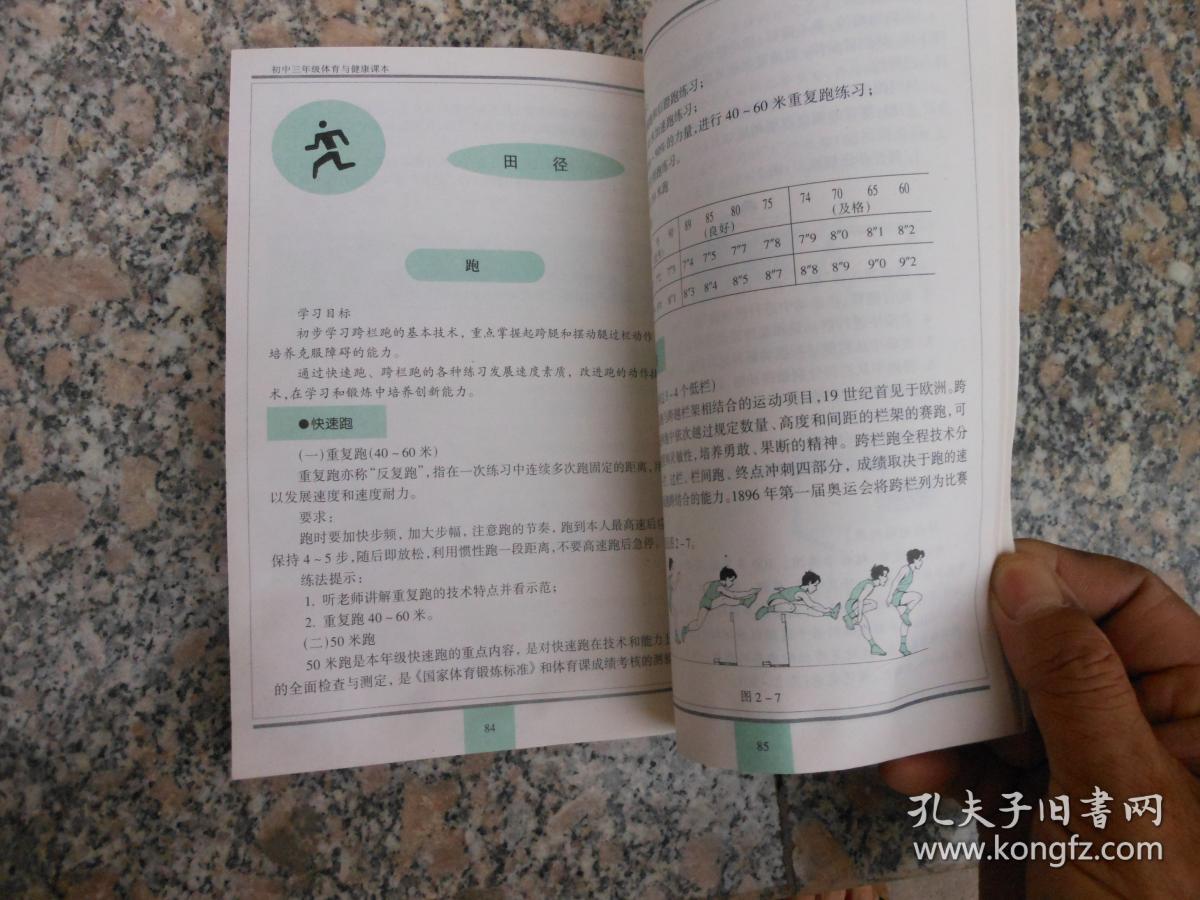 初中三年级体育与健康课本
田 径
跑
学习目标
初步学习跨栏跑的基本技术，重点掌握起跨腿和摆动腿过栏动作
培养克服障碍的能力。
通过快速跑、跨栏跑的各种练习发展速度素质，改进跑的动作技
术，在学习和锻炼中培养创新能力。
●快速跑
(一)重复跑(40~60米)
重复跑亦称“反复跑”，指在一次练习中连续多次跑固定的距离，用
以发展速度和速度耐力。
要求：
跑时要加快步频，加大步幅，注意跑的节奏，跑到本人最高速后
保持4~5步，随后即放松，利用惯性跑一段距离，不要高速跑后急停。
练法提示：
1. 听老师讲解重复跑的技术特点并看示范；
2. 重复跑40~60米。
(二)50米跑
50米跑是本年级快速跑的重点内容，是对快速跑在技术和能力上
的全面检查与测定，是《国家体育锻炼标准》和体育课成绩考核的测
84
跑练习；
速跑练习；
的力量，进行40~60米重复跑练习；
跑练习。
米跑
89 85 80 75 74 70 65 60
(良好) (及格)
7"3 7"4 7"5 7"7 7"8 7"9 8"0 8"1 8"2
8"1 8"3 8"4 8"5 8"7 8"8 8"9 9"0 9"2
3~4个低栏)
跨越栏架相结合的运动项目，19世纪首见于欧洲。跨
中依次越过规定数量、高度和间距的栏架的赛跑，可
灵敏性，培养勇敢、果断的精神。跨栏跑全程技术分
过栏、栏间跑、终点冲刺四部分，成绩取决于跑的速
结合的能力。1896年第一届奥运会将跨栏列为比赛
2-7。
图2-7
85
孔夫子旧書网
www.kongfz.com